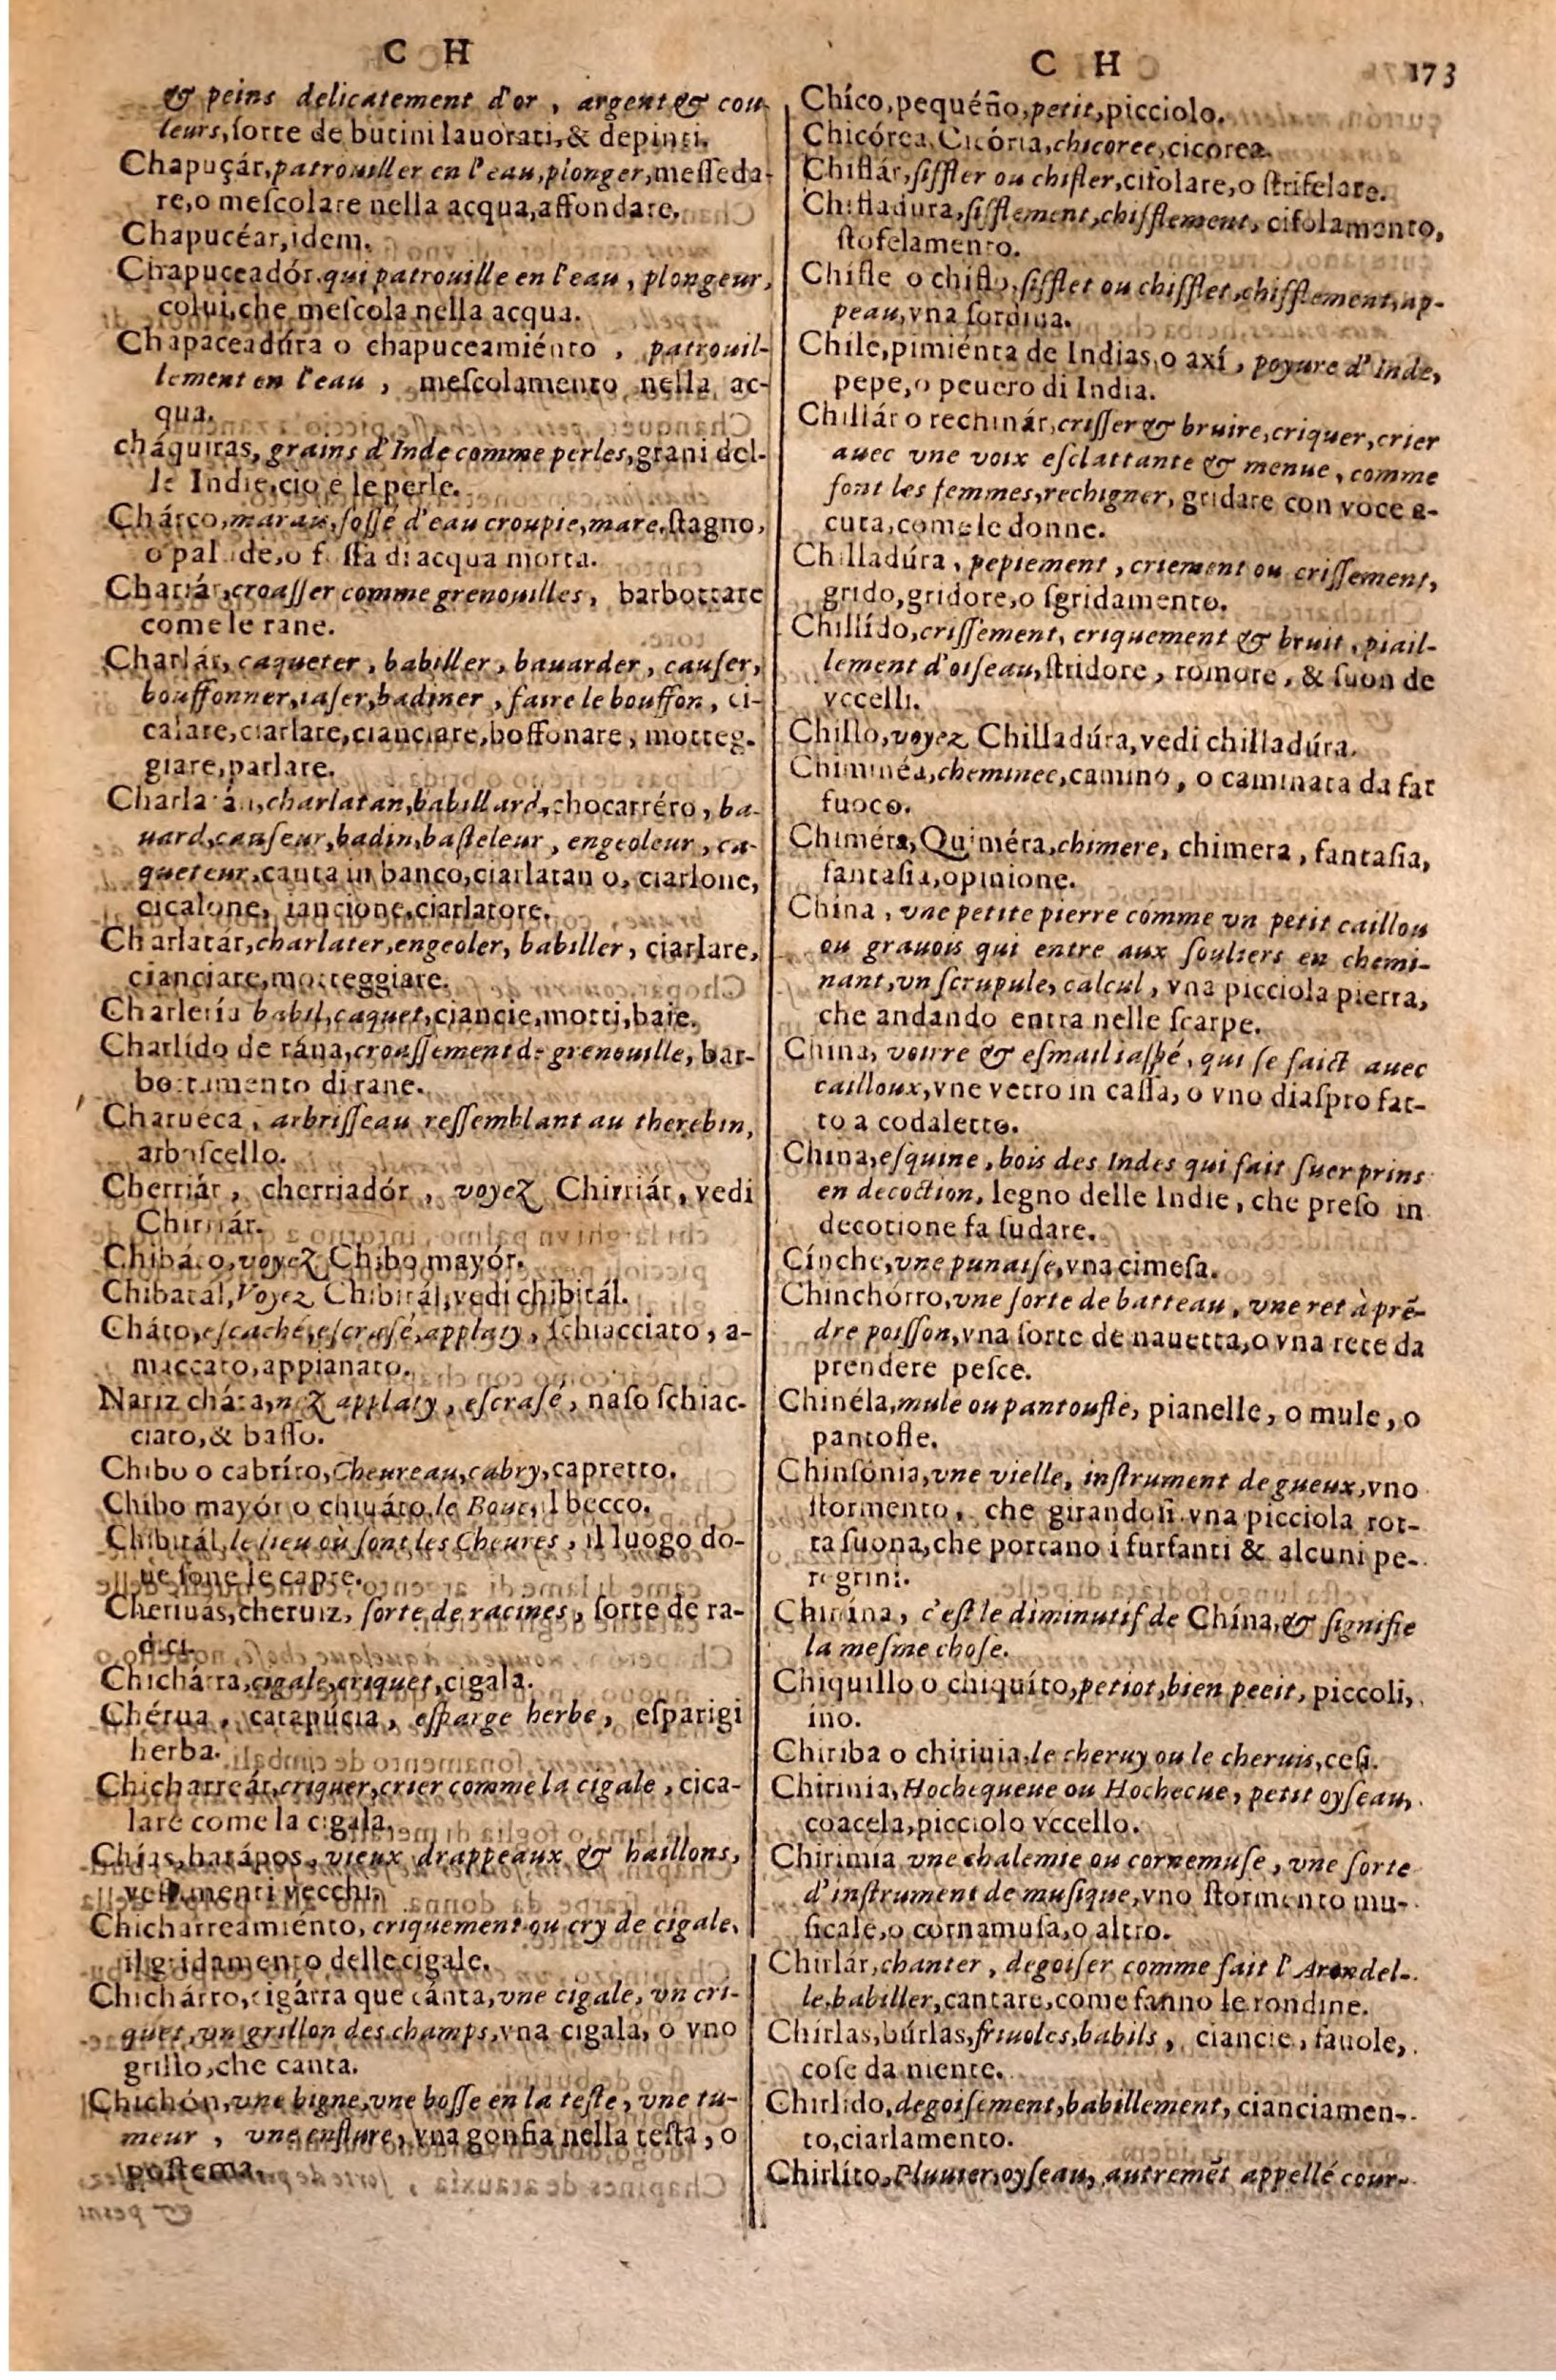 C H
& peins delicatement d'or, argent & cou-
leurs, sorte de butini lauorati, & depinti.
Chapuçár, patrouiller en l'eau, plonger, messeda-
re, o mescolare nella acqua, affondare.
Chapucéar, idem.
Chapuceadór, qui patrouille en l'eau, plongeur,
colui, che mescola nella acqua.
Chapaceadúra o chapuceamiénto, patrouil-
lement en l'eau, mescolamento nella ac-
qua.
cháquiras, grains d'Inde comme perles, grani del-
le Indie, cio e le perle.
Chárco, marais, fossé d'eau croupie, mare, stagno,
o palude, o fossa di acqua morta.
Charlár, croasser comme grenouilles, barbottare
come le rane.
Charlár, caqueter, babiller, bauarder, causer,
bouffonner, iaser, badiner, faire le bouffon, ci-
calare, ciarlare, cianciare, boffonare, motteg-
giare, parlare.
Charlatán, charlatan, babillard, chocarréro, ba-
uard, causeur, badin, basteleur, engeoleur, ca-
queteur, canta in banco, ciarlatano, ciarlone,
cicalone, iancione, ciarlatore.
Charlatár, charlater, engeoler, babiller, ciarlare,
cianciare, motteggiare.
Charlería babil, caquet, ciancie, motti, baie.
Charlído de rána, croassement de grenouille, bar-
bottamento di rane.
Charueca, arbrisseau ressemblant au therebin,
arboscello.
Cherriár, cherriadór, voyez Chirriár, vedi
Chirriár.
Chibáto, voyez Chibo mayór.
Chibatál, Voyez Chibitál, vedi chibitál.
Cháto, escaché, escrasé, applaty, schiacciato, a-
maccato, appianato.
Nariz cháta, nez applaty, escrasé, naso schiac-
ciato, & basso.
Chibo o cabríto, Cheureau, cabry, capretto.
Chíbo mayór o chiuáto, le Bouc, il becco.
Chibitál, le lieu où sont les Cheures, il luogo do-
ue sone le capre.
Cheriuás, cheruiz, sorte de racines, sorte de ra-
dici.
Chichárra, cigale, criquet, cigala.
Chérua, catapúcia, esparge herbe, esparigi
herba.
Chicharreár, criquer, crier comme la cigale, cica-
lare come la cigala.
Chías, harápos, vieux drappeaux & haillons,
vestimenti vecchi.
Chicharreamiénto, criquement ou cry de cigale,
il gridamento delle cigale.
Chichárro, cigárra que cánta, vne cigale, vn cri-
quet, vn grillon des champs, vna cigala, o vno
grillo, che canta.
Chichón, vne bigne, vne bosse en la teste, vne tu-
meur, vne enflure, vna gonfia nella testa, o
postema.
C H
173
Chíco, pequéño, petit, picciolo.
Chicórea, Cicória, chicoree, cicorea.
Chiflár, siffler ou chifler, cifolare, o strifelare.
Chifladura, sifflement, chifflement, cifolamento,
stofelamento.
Chífle o chíflo, sifflet ou chifflet, chifflement, ap-
peau, vna sordina.
Chile, pimiénta de Indias, o axí, poyure d'Inde,
pepe, o peuero di India.
Chillár o rechinár, crisser & bruire, criquer, crier
auec vne voix esclattante & menue, comme
font les femmes, rechigner, gridare con voce a-
cuta, come le donne.
Chilladúra, pepiement, criement ou crissement,
grido, gridore, o sgridamento.
Chillído, crissement, criquement & bruit, piail-
lement d'oiseau, stridore, romore, & suon de
vccelli.
Chillo, voyez Chilladúra, vedi chilladúra.
Chiminéa, cheminee, camino, o caminata da far
fuoco.
Chiméra, Quiméra, chimere, chimera, fantasia,
fantasia, opinione.
China, vne petite pierre comme vn petit caillou
ou grauois qui entre aux souliers en chemi-
nant, vn scrupule, calcul, vna picciola pierra,
che andando entra nelle scarpe.
China, voirre & esmail iaspé, qui se faict auec
cailloux, vne vetro in cassa, o vno diaspro fat-
to a codaletto.
China, esquine, bois des Indes qui fait suer prins
en decoction, legno delle Indie, che preso in
decotione fa sudare.
Cínche, vne punaise, vna cimesa.
Chinchórro, vne sorte de batteau, vne ret à prẽ-
dre poisson, vna sorte de nauetta, o vna rete da
prendere pesce.
Chinéla, mule ou pantoufle, pianelle, o mule, o
pantofle.
Chinfónia, vne vielle, instrument de gueux, vno
stormento, che girandosi vna picciola rot-
ta suona, che portano i furfanti & alcuni pe-
regrini.
Chinína, c'est le diminutif de Chína, & signifie
la mesme chose.
Chiquíllo o chiquíto, petiot, bien petit, piccoli,
ino.
Chiriba o chiriuia, le cheruy ou le cheruis, cesi.
Chiriuia, Hochequeue ou Hochecue, petit oyseau,
coacela, picciolo vccello.
Chirimia vne chalemie ou cornemuse, vne sorte
d'instrument de musique, vno stormento mu-
sicale, o cornamusa, o altro.
Chirlár, chanter, degoiser comme fait l'Arondel-
le, babiller, cantare, come fanno le rondine.
Chírlas, búrlas, friuoles, babils, ciancie, fauole,
cose da niente.
Chirlído, degoisement, babillement, cianciamen-
to, ciarlamento.
Chirlíto, Pluuier, oyseau, autremẽt appellé cour-